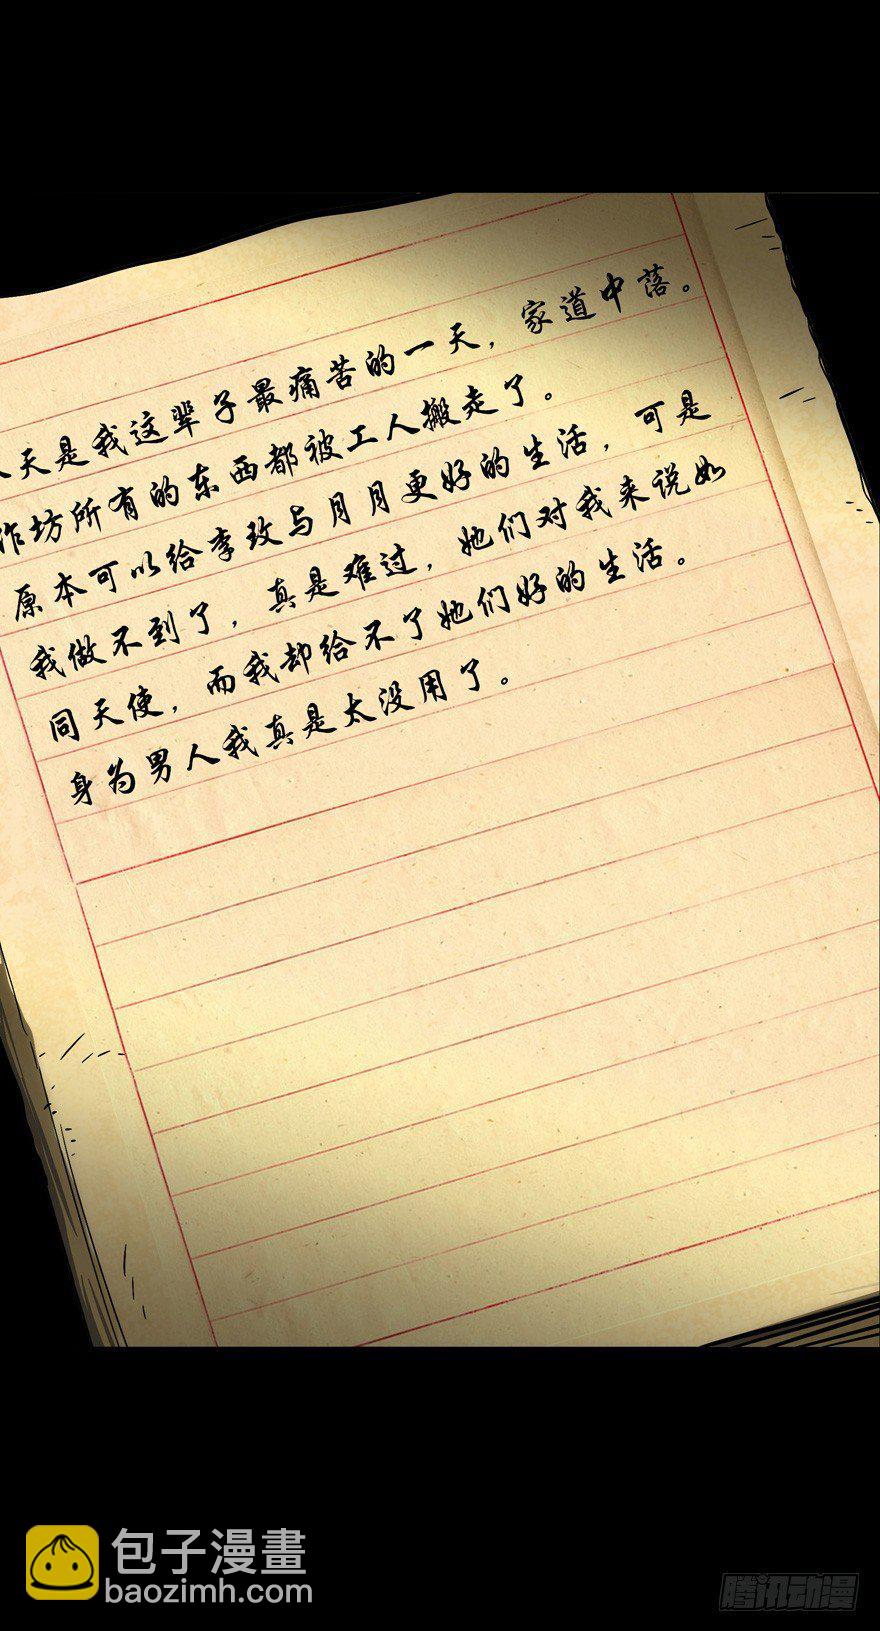 天是我这辈子最痛苦的一天，家道中落。
作坊所有的东西都被工人搬走了。
原本可以给李玫与月月更好的生活，可是
我做不到了，真是难过，她们对我来说如
同天使，而我却给不了她们好的生活。
身为男人我真是太没用了。
包子漫畫
baozimh.com
腾讯动漫